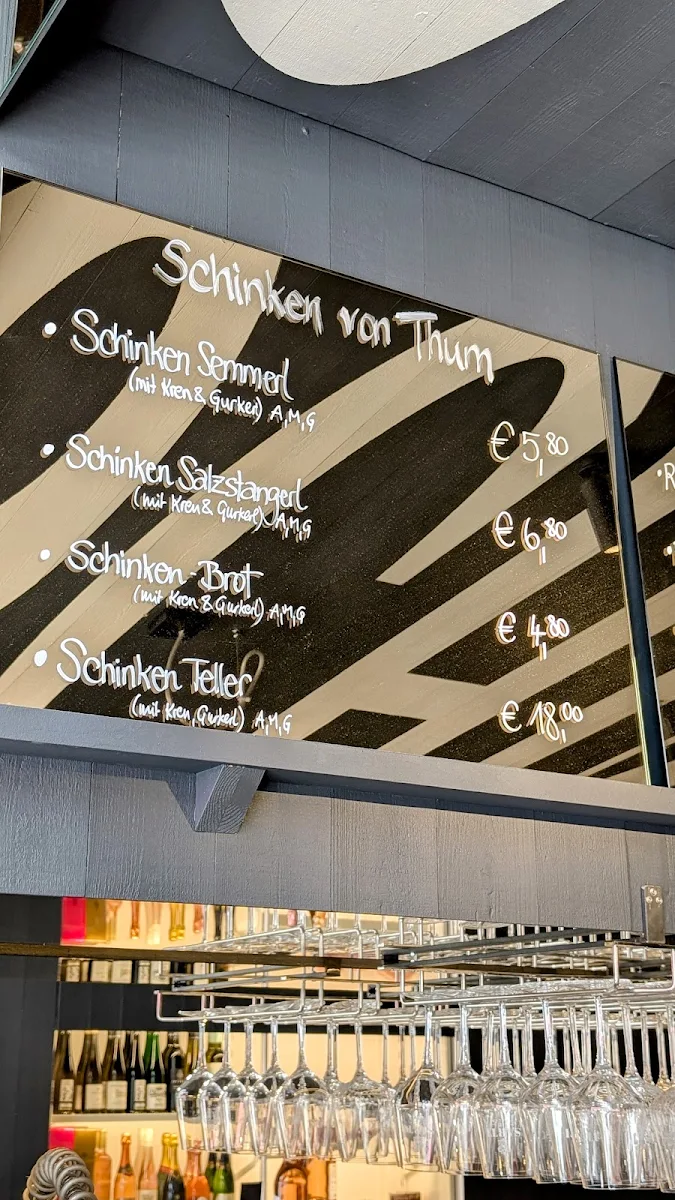 Schinken von Thum
• Schinken Semmerl € 5,80
(mit Kren & Gurkerl) A,M,G
• Schinken Salzstangerl € 6,80
(mit Kren & Gurkerl) A,M,G
• Schinken-Brot € 4,80
(mit Kren & Gurkerl) A,M,G
• Schinken Teller € 18,00
(mit Kren, Gurkerl) A,M,G
• R